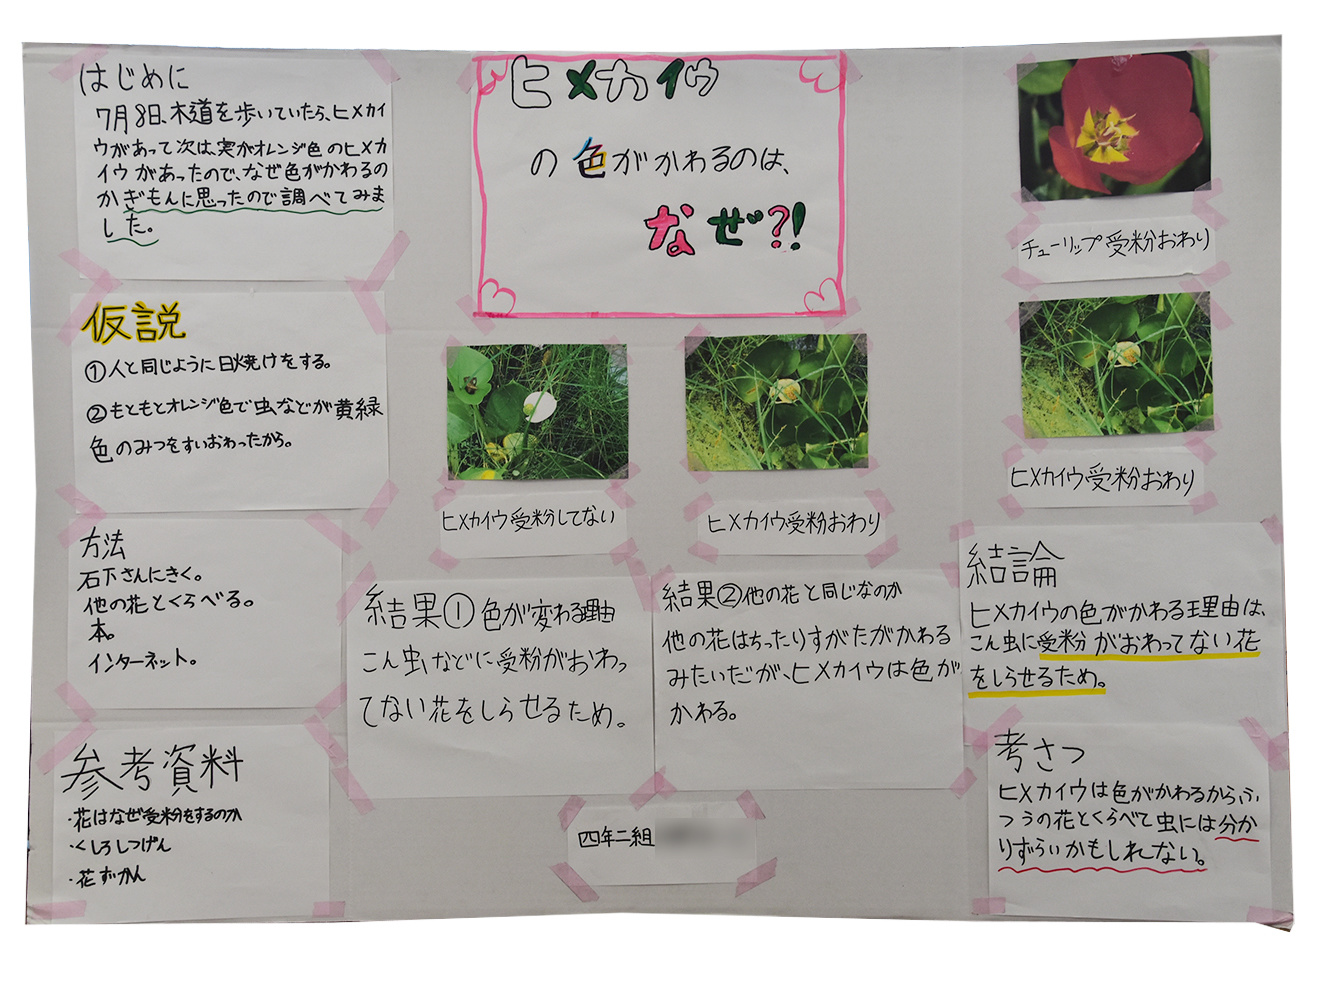 はじめに
7月8日、木道を歩いていたら、ヒメカイ
ウがあって次は、実がオレンジ色のヒメカ
イウがあったので、なぜ色がかわるの
かぎもんに思ったので調べてみま
した。
仮説
①人と同じように日焼けをする。
②もともとオレンジ色で虫などが黄緑
色のみつをすいおわったから。
方法
石下さんにきく。
他の花とくらべる。
本。
インターネット。
参考資料
・花はなぜ受粉をするのか
・くしろしつげん
・花ずかん
ヒメカイウ
の色がかわるのは、
なぜ?!
ヒメカイウ受粉してない
ヒメカイウ受粉おわり
結果①色が変わる理由
こん虫などに受粉がおわっ
てない花をしらせるため。
結果②他の花と同じなのか
他の花はちったりすがたがかわる
みたいだが、ヒメカイウは色が
かわる。
四年二組
チューリップ受粉おわり
ヒメカイウ受粉おわり
結論
ヒメカイウの色がかわる理由は、
こん虫に受粉がおわってない花
をしらせるため。
考さつ
ヒメカイウは色がかわるから、ふ
つうの花とくらべて虫には分か
りずらいかもしれない。